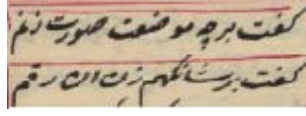 گفت بر چه موضعت صورت زنم
گفت بر شانگهم زن آن رقم